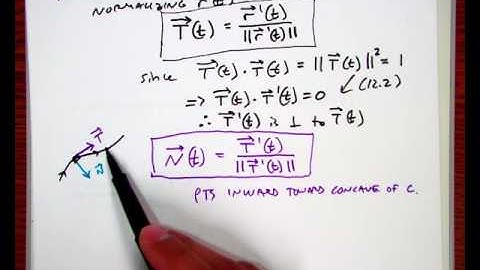 NORMALIZING
T⃗(t) = r⃗'(t) / ||r⃗'(t)||
since T⃗(t) · T⃗(t) = ||T⃗(t)||² = 1
=> T⃗(t) · T⃗'(t) = 0 (12.2)
∴ T⃗'(t) is ⊥ to T⃗(t)
T⃗
N⃗
N⃗(t) = T⃗'(t) / ||T⃗'(t)||
PTS INWARD TOWARD CONCAVE OF C.